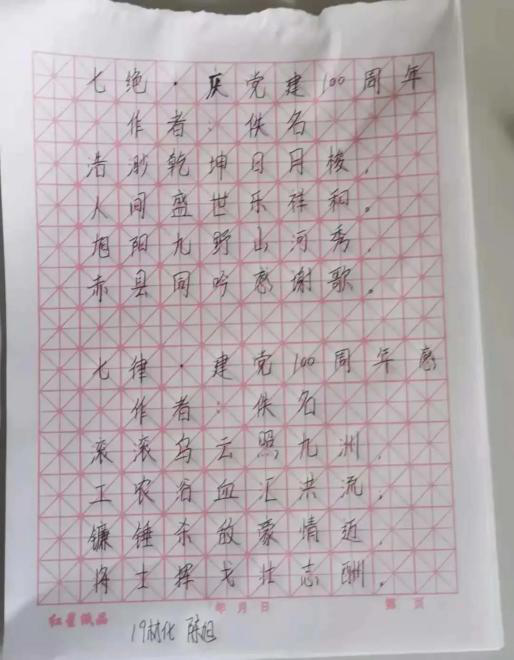 七绝·庆党建100周年
作者:佚名
浩渺乾坤日月梭,
人间盛世乐祥和。
旭阳九野山河秀,
赤县同吟感谢歌。
七律·建党100周年感
作者:佚名
滚滚乌云照九洲,
工农浴血汇洪流,
镰锤杀敌豪情迈,
将士挥戈壮志酬。
红星纸品
年 月 日
第 页
19材化 陈旭